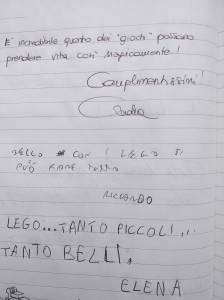 È incredibile quanto dei "giochi" possano
prendere vita così magicamente!
Complimentissimi!
BELLO CON I LEGO SI
PUÒ FARE TUTTO
RICCARDO
LEGO...TANTO PICCOLI,..
TANTO BELLI,
ELENA